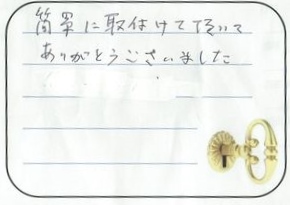 箪笥に取付けて頂いて
ありがとうございました